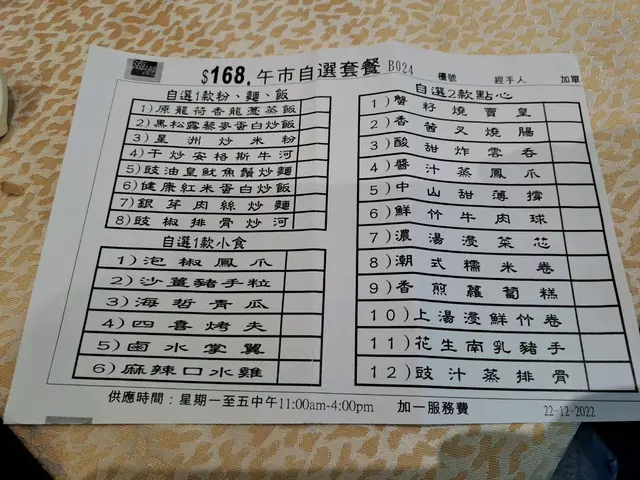 $168, 午市自選套餐 B024 檯號 經手人 加單
自選1款粉、麵、飯
1)原龍荷香龍躉蒸飯
2)黑松露藜麥蛋白炒飯
3)星洲炒米粉
4)干炒安格斯牛河
5)豉油皇魷魚鬚炒麵
6)健康紅米蛋白炒飯
7)銀芽肉絲炒麵
8)豉椒排骨炒河
自選1款小食
1)泡椒鳳爪
2)沙薑豬手粒
3)海哲青瓜
4)四喜烤夫
5)鹵水掌翼
6)麻辣口水雞
自選2款點心
1)蟹籽燒賣皇
2)香茜叉燒腸
3)酸甜炸雲吞
4)醬汁蒸鳳爪
5)中山甜薄撐
6)鮮竹牛肉球
7)濃湯浸菜芯
8)潮式糯米卷
9)香煎蘿蔔糕
10)上湯浸鮮竹卷
11)花生南乳豬手
12)豉汁蒸排骨
供應時間：星期一至五中午11:00am-4:00pm 加一服務費 22-12-2022